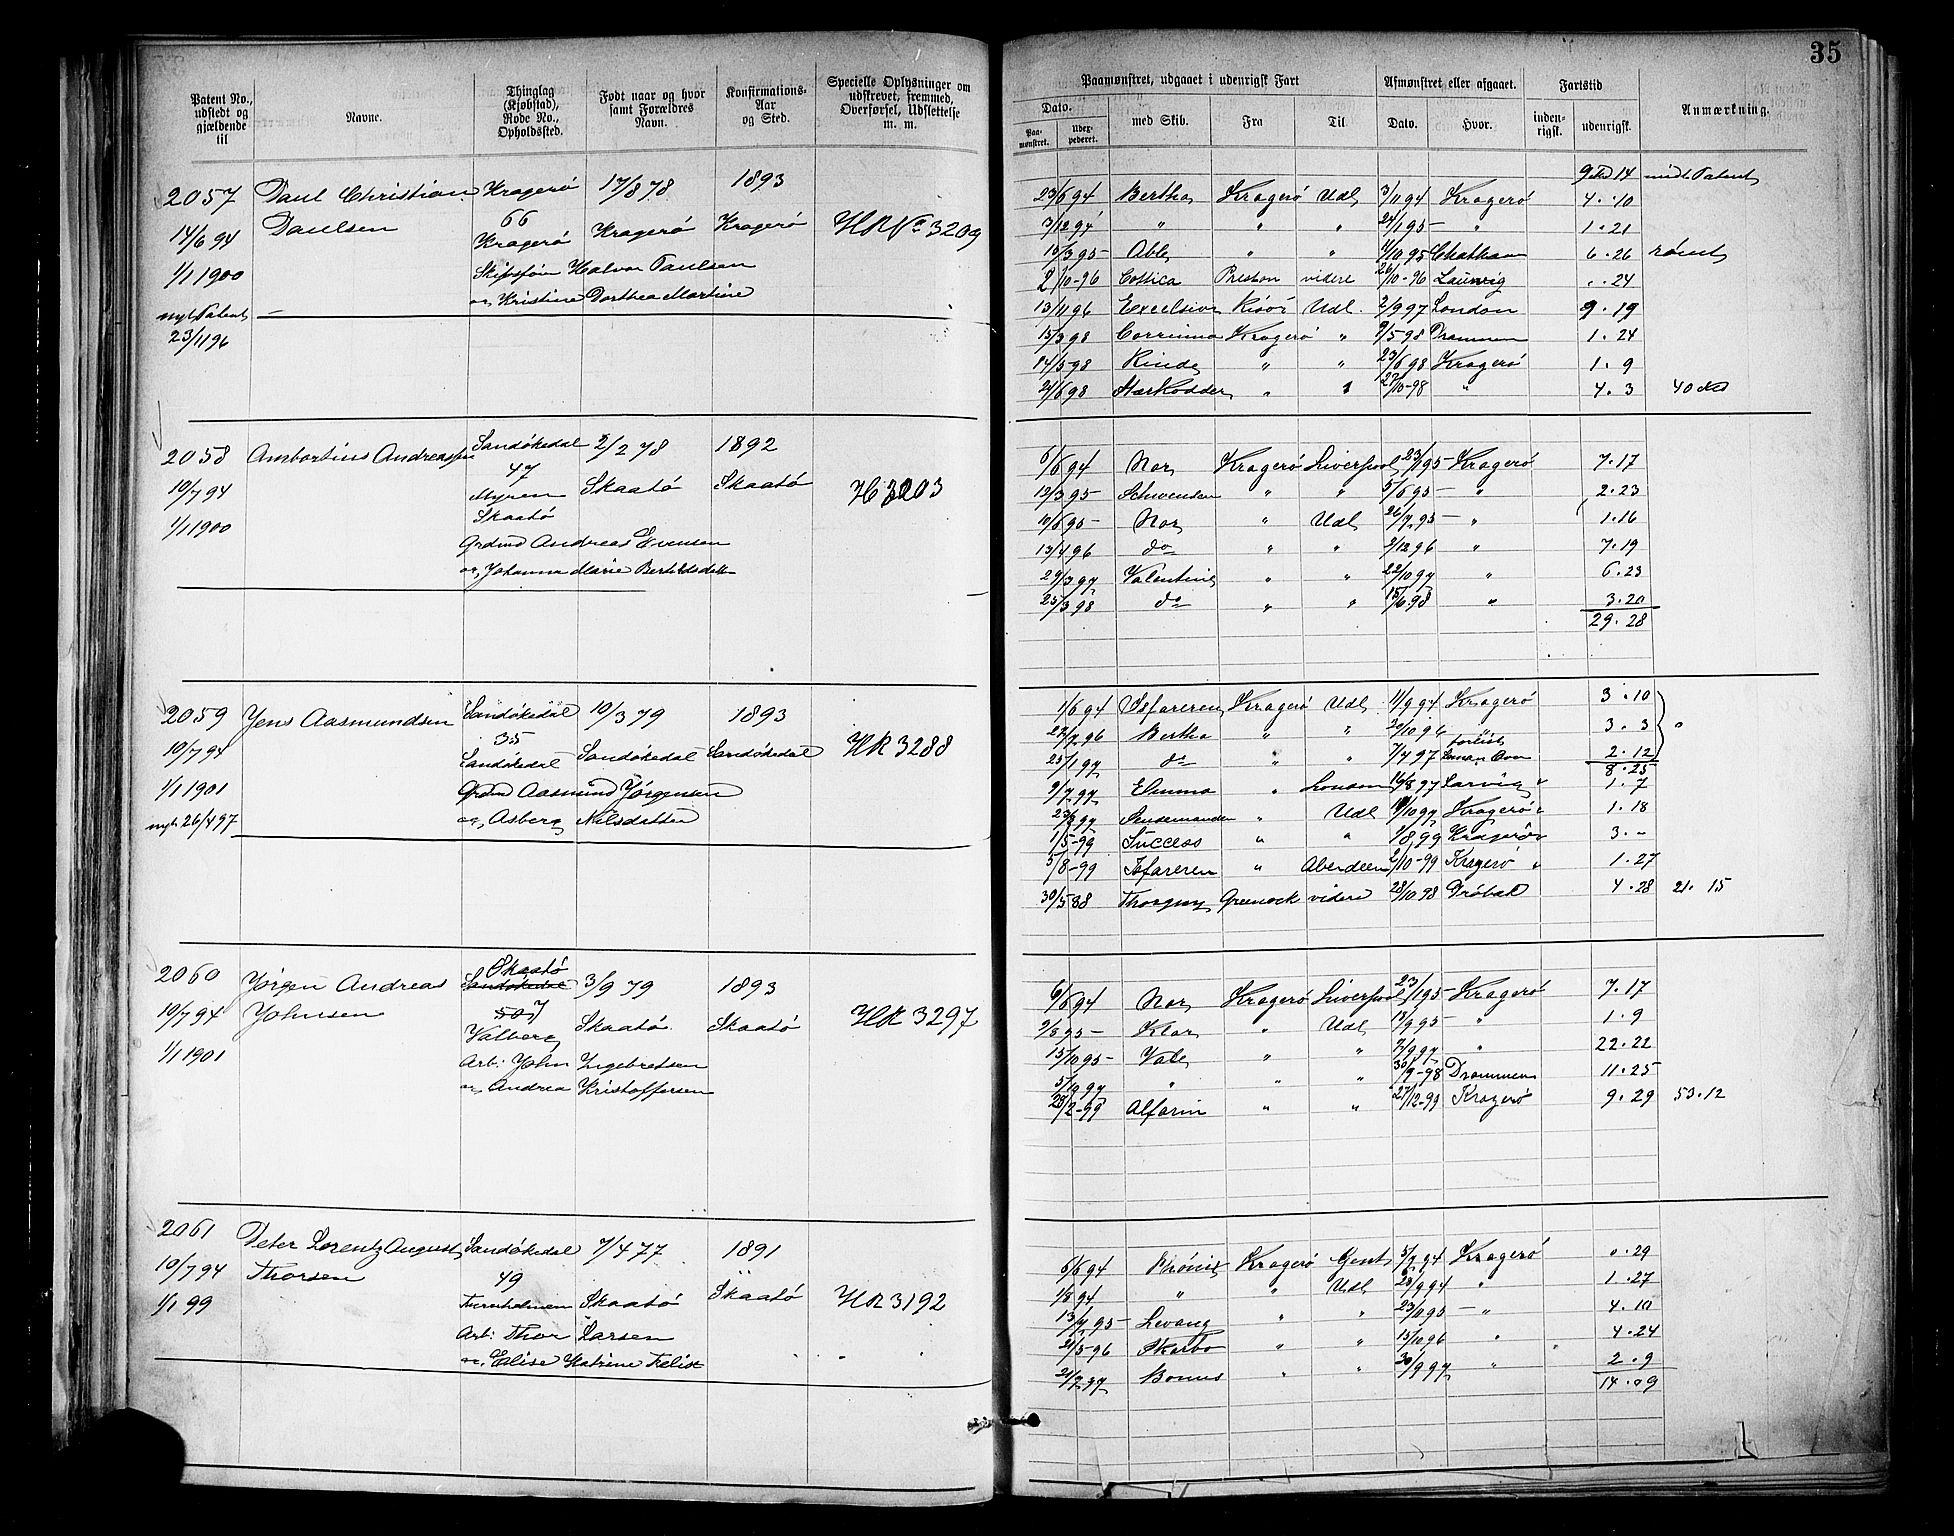 35
Patent No., udstedt og gjældende til
Navne.
Thinglag (Kjøbstad), Rode No., Opholdssted.
Født naar og hvor samt Forældres Navn.
Konfirmations-Aar og Sted.
Specielle Oplysninger om udskrevet, fremmed, Overførsel, Udslettelse m. m.
Paamønstret, udgaaet i udenrigsk Fart
Afmønstret eller afgaaet.
Fartstid
Anmærkning.
Dato.
Paa-mønstret.
Udex-pederet.
med Skib.
Fra
Til
Dato.
Hvor.
inden-rigsk.
udenrigsk.
2057 Paul Christian Kragerø 17/8 78 1893
14/6 94 Paulsen 66 Kragerø Kragerø Kragerø HR No 3209
1/1 1900 Halvor Paulsen
nyt Patent og Kristine Dorthea Martine
23/11 96
14 nyt Patent
23/6 94 Bertha Kragerø Udl 3/11 94 Kragerø 4. 10
3/12 94 " " " 24/1 95 - " 1. 21
15/3 95 - Abb " " 10 95 Chatham 6. 26 rømt
2/10-96 Cottica Preston videre 26/10-96 Laurvig .. 24
13/11 96 Excelsior Risør Udl. 2/9 97 London 9. 19
15/3 98 Kragerø " 9/5-98 Drammen 1. 24
14/5-98 Rinde " " 23/6 98 Kragerø 1. 9
21/6 98 Stærkodder " 22/10-98 " 4. 3
2058 Andreassen Sandøkedal 2/2 78 1892
10/7 94 47 Myren Skaatø Skaatø H 3203
1/1 1900 Skaatø
Grdmd Andreas Evensen
og Johanna Marie
6/6 94 Nor Kragerø Liverpool 23/1 95 - Kragerø 7. 17
12/3 95 - " " 5/6 95 - " 2. 23
10/6 95 - Nor " Udl 26/7 95 - " 1. 16
13/4 96 do " " 2/12 96 " 7. 19
29/3 97 Valentine " " 22/10 97 " 6. 23
25/3 98 do " " 15/6 98 " 3. 20
29. 28
2059 Jens Aasmundsen Sandøkedal 10/3 79 1893
10/7 94 35 Sandøkedal Sandøkedal Sandøkedal HR 3288
1/1 1901 Grdmd Aasmund Jørgensen
nyt 26/4 97 og Asberg Nilsdatter
1/6 94 Isfareren Kragerø Udl 11/9 94 Kragerø 3. 10
22/7 96 Bertha " " 20/10 96 " 3. 3
25/1 97 do " " 7/4 97 forlist 2. 12
8. 25
9/7 97 Emma " London 16/8 97 Larvig " 1. 7
" Udl 10 97 Kragerø " 1. 18
1/5-99 Success " " 1/8 99 Kragerø " 3. -
5/8-99 Isfareren " Aberdeen 2/10-99 Kragerø " 1. 27
30/5 88 Greenock videre 28/10 98 Drøbak 4. 28 21. 15
2060 Jørgen Andreas Skaatø Sandøkedal 3/9 79 1893
10/7 94 Johnsen 50 7 Valberg Skaatø. Skaatø HR 3297
1/1 1901 Arb: John Ingebretsen
og Andrea Kristoffersen
6/6 94 Nor Kragerø Liverpool 23/1 95 - Kragerø 7. 17
9/8 95 - Klar " Udl 18/9 95 - " 1. 9
15/10 95 - Vale " " 7/9 97 " 22. 22
5/10 97 " " " 30/9-98 Drammen 11. 25
28/2-99 Alfarin " " 27/12-99 Kragerø 9. 29 53. 12
2061 Peter Lorentz August Sandøkedal 7/4 77 1891
10/7 94 Thorsen 49 Skaatø Skaatø HR 3192
1/1 99 Arb: Thor Larsen
og Elise Katrine
6/6 94 Phønix Kragerø Gent 5/7 94 Kragerø ". 29
1/8 94 " " Udl 28/9 94 " 1. 27
13/7 95 - Levang " " 23/10 95 - " 4. 10
21/5-96 Skarbo " " 15/10 96 " 4. 24
21/7 97 Bonus " " 30/9 97 " 2. 9
14. 09